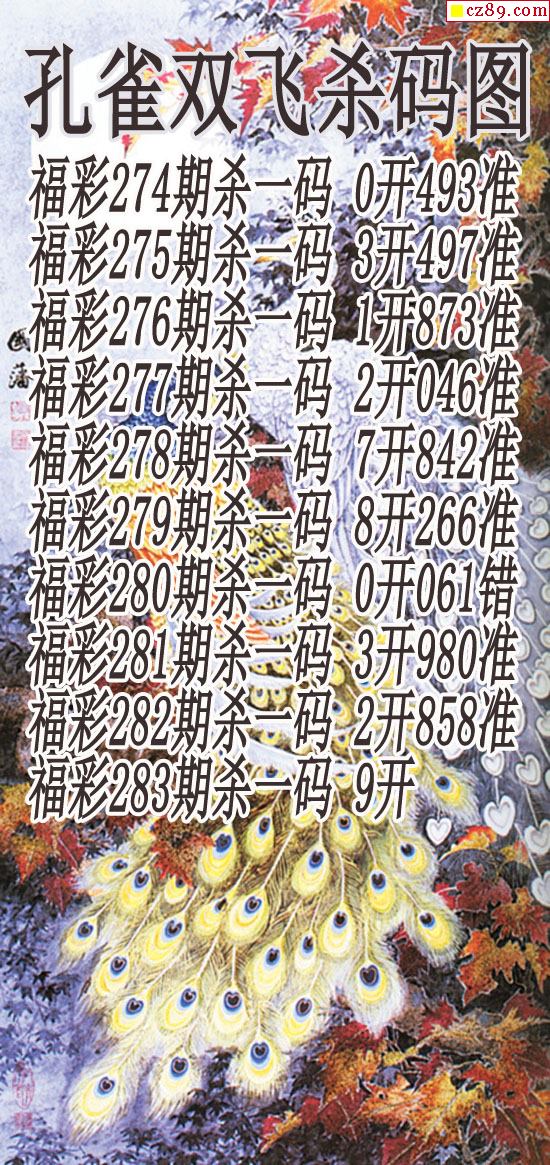 cz89.com
孔雀双飞杀码图
福彩274期杀一码 0开493准
福彩275期杀一码 3开497准
福彩276期杀一码 1开873准
福彩277期杀一码 2开046准
福彩278期杀一码 7开842准
福彩279期杀一码 8开266准
福彩280期杀一码 0开061错
福彩281期杀一码 3开980准
福彩282期杀一码 2开858准
福彩283期杀一码 9开